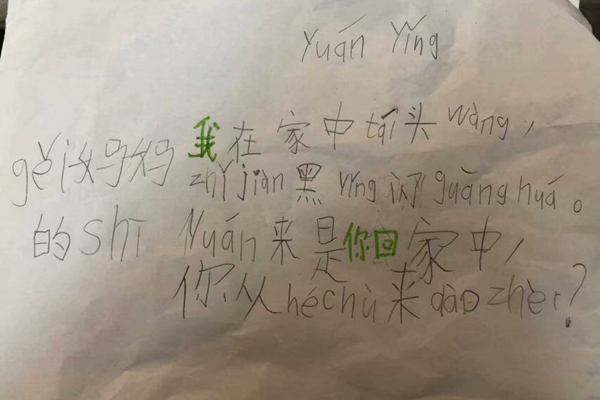 Yuán Yǐng
gěi妈妈
的shī
我在家中tái头wàng，
zhǐ jiàn黑yǐng闪guāng huá。
Yuán来是你回家中，
你从héchù来dào zhèr？